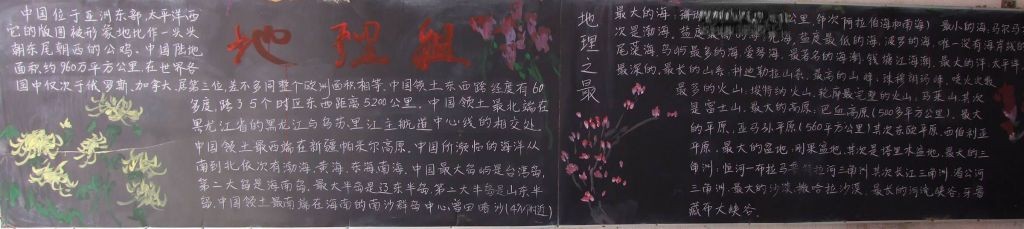 中国位于亚洲东部,太平洋西
它的版图被形象地比作一头头
朝东尾朝西的公鸡.中国陆地
面积约960万平方公里,在世界各
国中仅次于俄罗斯、加拿大,居第三位,差不多同整个欧洲面积相等.中国领土东西跨经度有60
多度,跨了5个时区东西距离5200公里.中国领土最北端在
黑龙江省的黑龙江与乌苏里江主航道中心线的相交处
中国领土最西端在新疆帕米尔高原.中国所濒临的海洋从
南到北依次有渤海,黄海,东海南海.中国最大岛屿是台湾岛,
第二大岛是海南岛.最大半岛是辽东半岛.第二大半岛是山东半
岛.中国领土最南端在海南的南沙群岛中心曾母暗沙(4°N附近)
地理组
地理之最
最大的海,珊瑚 公里,其次阿拉伯海和南海)最小的海,马尔马
次是渤海,盐度 海,盐度最低的海,波罗的海,唯一没有海岸线的
尾藻海,岛屿最多的海,爱琴海,最著名的海潮,钱塘江海潮,最大的洋 太平洋
最深的,最长的山系,科迪勒拉山系,最高的山峰,珠穆朗玛峰,喷火次数
最多的火山,埃特纳火山,轮廓最完整的火山,马荣山,其次
是富士山,最大的高原,巴西高原(500多平方公里),最大
的平原,亚马孙平原(560平方公里)其次东欧平原,西伯利亚
平原,最大的盆地,刚果盆地,其次是塔里木盆地,最大的三
角洲,恒河—布拉马 拉河三角洲,其次长江三角洲,湄公河
三角洲.最大的沙漠,撒哈拉沙漠,最长的河流峡谷,牙鲁
藏布大峡谷.